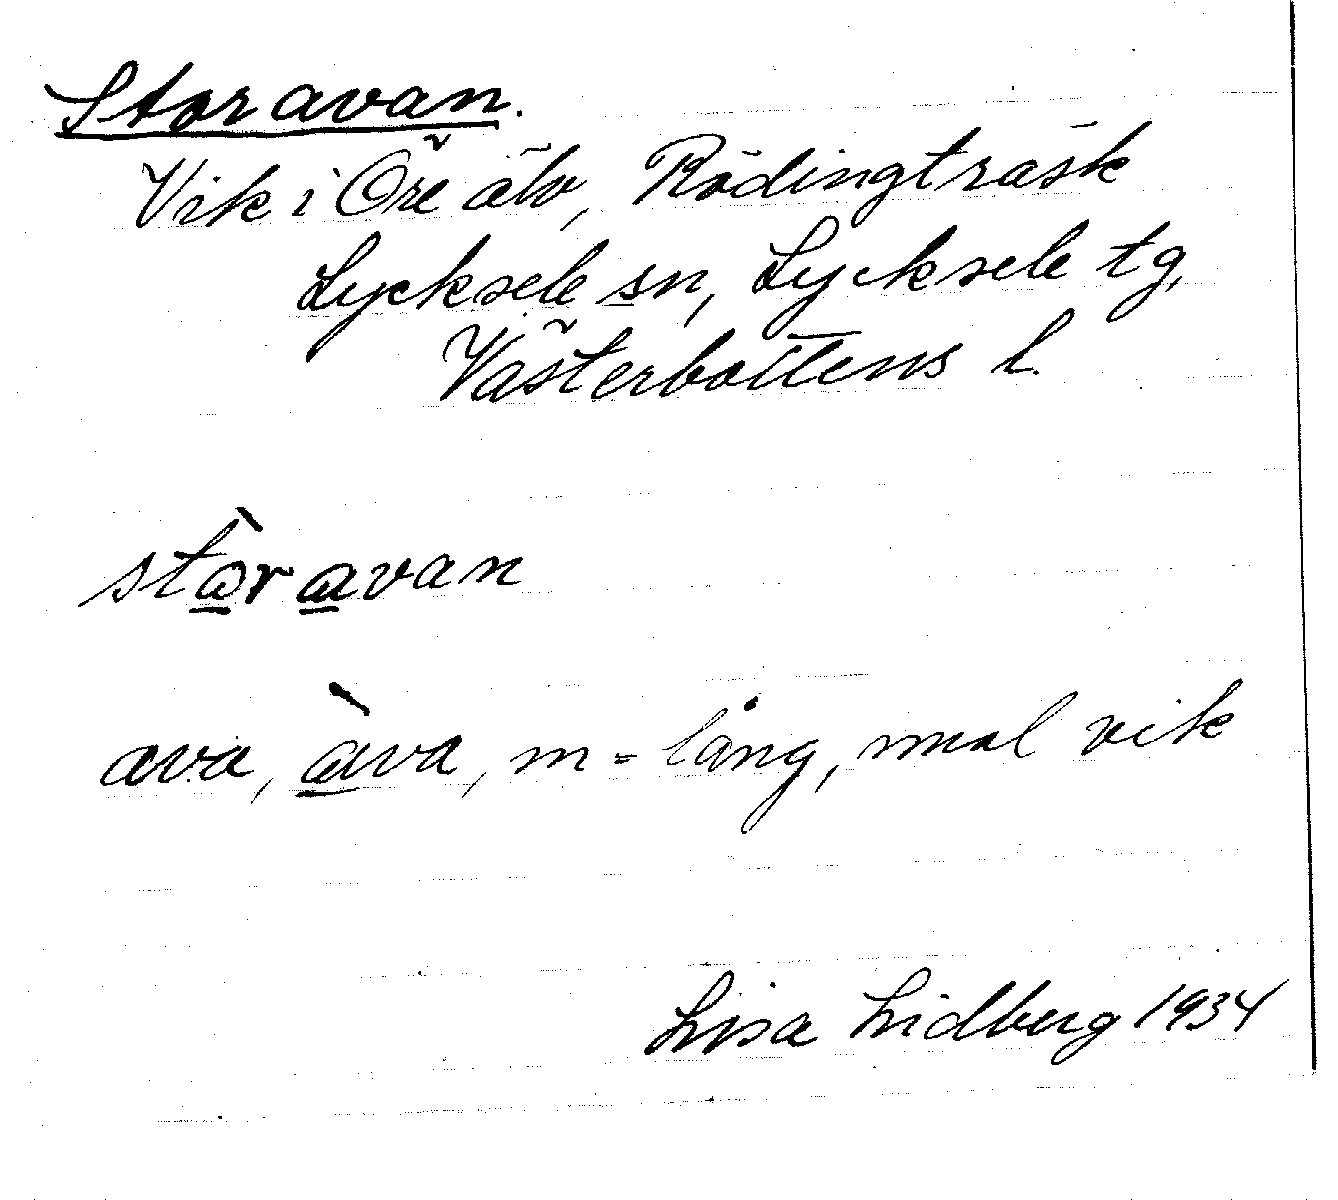 Storavan.
Vik i Öre älv, Rödingträsk
Lycksele sn, Lycksele tg,
Västerbottens l.
stå̀ravan
ava, àva, m = lång, smal vik
Lisa Lidberg 1934